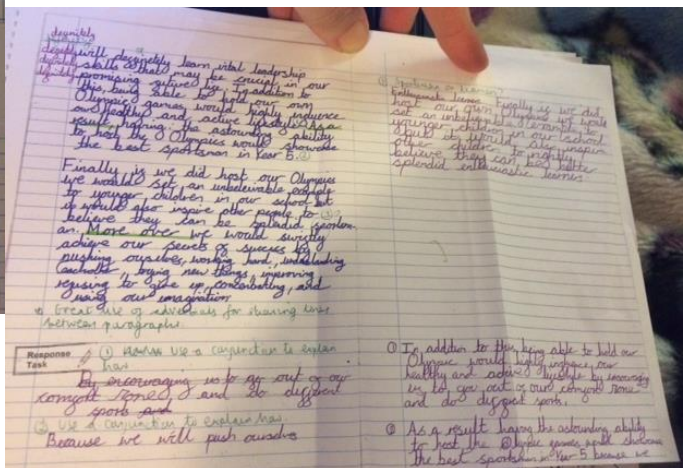 definitely
definitely
definitely
definitely
will deffinetely learn vital leadership
skills that may be crucial in our
promising future life. In addition to
this, being able to hold our own
Olympic games, would highly influence
our healthy and active lifestyle. As a
result, having the astounding ability
to host the Olympics would showcase
the best sportsman in Year 5. ②
Finally if we did host our Olympics
we would set an unbeleivable example
to younger children in our school but
it would also inspire other people to ③
believe they can be spladid sportsm-
an. More over we would swiftly
achieve our secrets of success by
pushing ourselves, working hard, understanding
eachother, trying new things, improving
refusing to give up, concentrating, and
using our imagination
Great use of adverbials for sharing links
between paragraphs.
Response
Task
① Use a conjunction to explain
how
By encouraging us to go out of our
comfort zone, and do different
sports and
② Use a conjunction to explain how.
Because we will push ourselves
③ Sportsman or learner?
Enthusiastic learner Finally if we did
host our own Olympics we would
set an unbelievable example to
younger children in our school
but it would also inspire
other children to
believe they can be better
splendid enthusiastic learners
① In addition to this being able to hold our
Olympic would highly influence our
healthy and active lifestyle by encouraging
us to go out of our comfort zone
and do different sports.
② As a result having the astounding ability
to host the Olympic games would showcase
the best sportsman in Year 5 because we